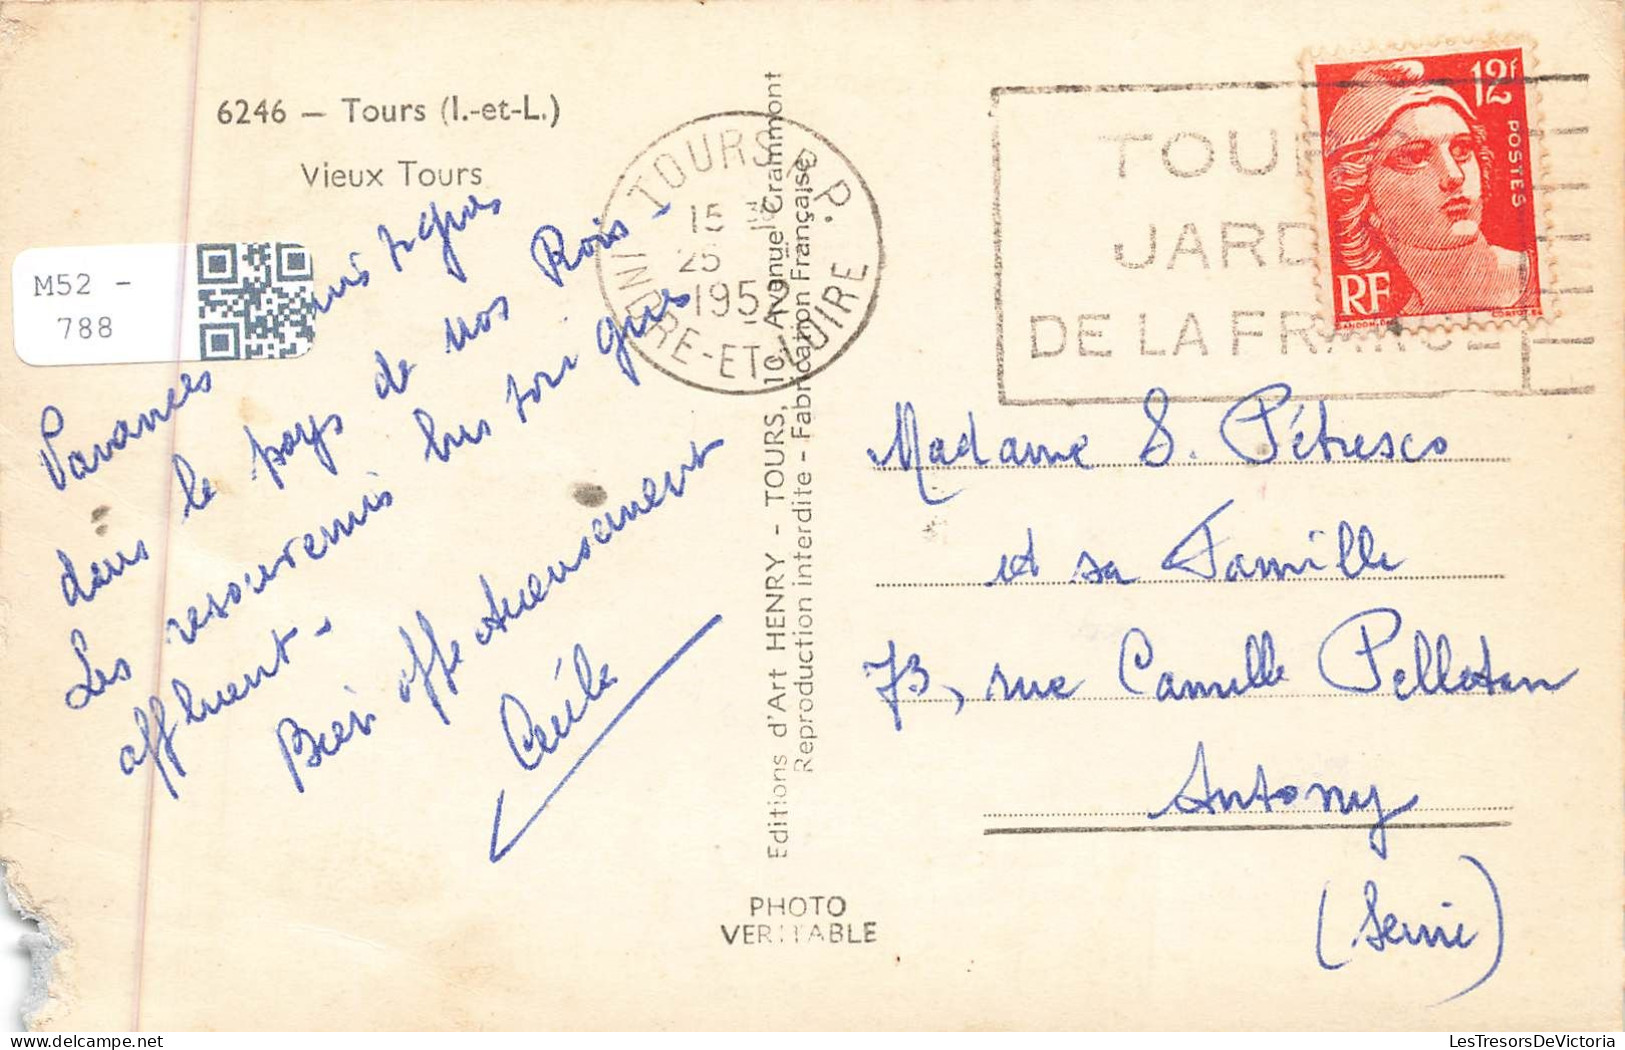 6246 — Tours (I.-et-L.)
Vieux Tours
M52 -
788
dans le pays de nos Rois -
Les
affluent -
Bien affectueusement
Cécile
TOURS R.P.
15
25
1952
INDRE-ET-LOIRE
Editions d'Art HENRY - TOURS, 10, Avenue Grammont
Reproduction interdite - Fabrication Française
PHOTO
VERITABLE
TOURS
JARDIN
DE LA FRANCE
12f
POSTES
RF
GANDON
CORTOT
Madame S. Pétresco
et sa Famille
73, rue Camille Pelletan
Antony
(Seine)
LesTresorsDeVictoria